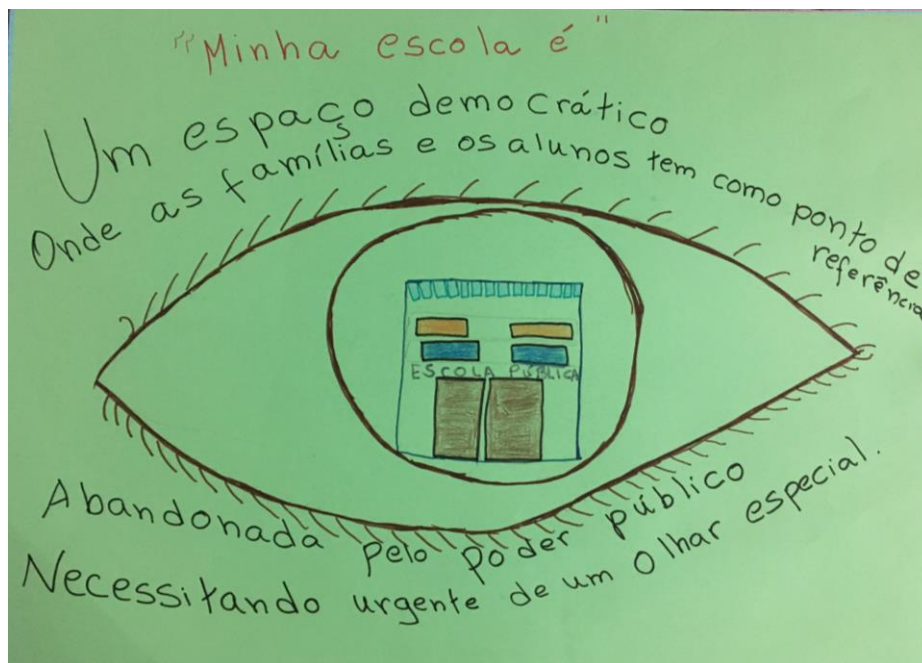 "Minha escola é"
Um espaço democrático
Onde as famílias e os alunos tem como ponto de
referência
ESCOLA PÚBLICA
Abandonada pelo poder público
Necessitando urgente de um Olhar especial.